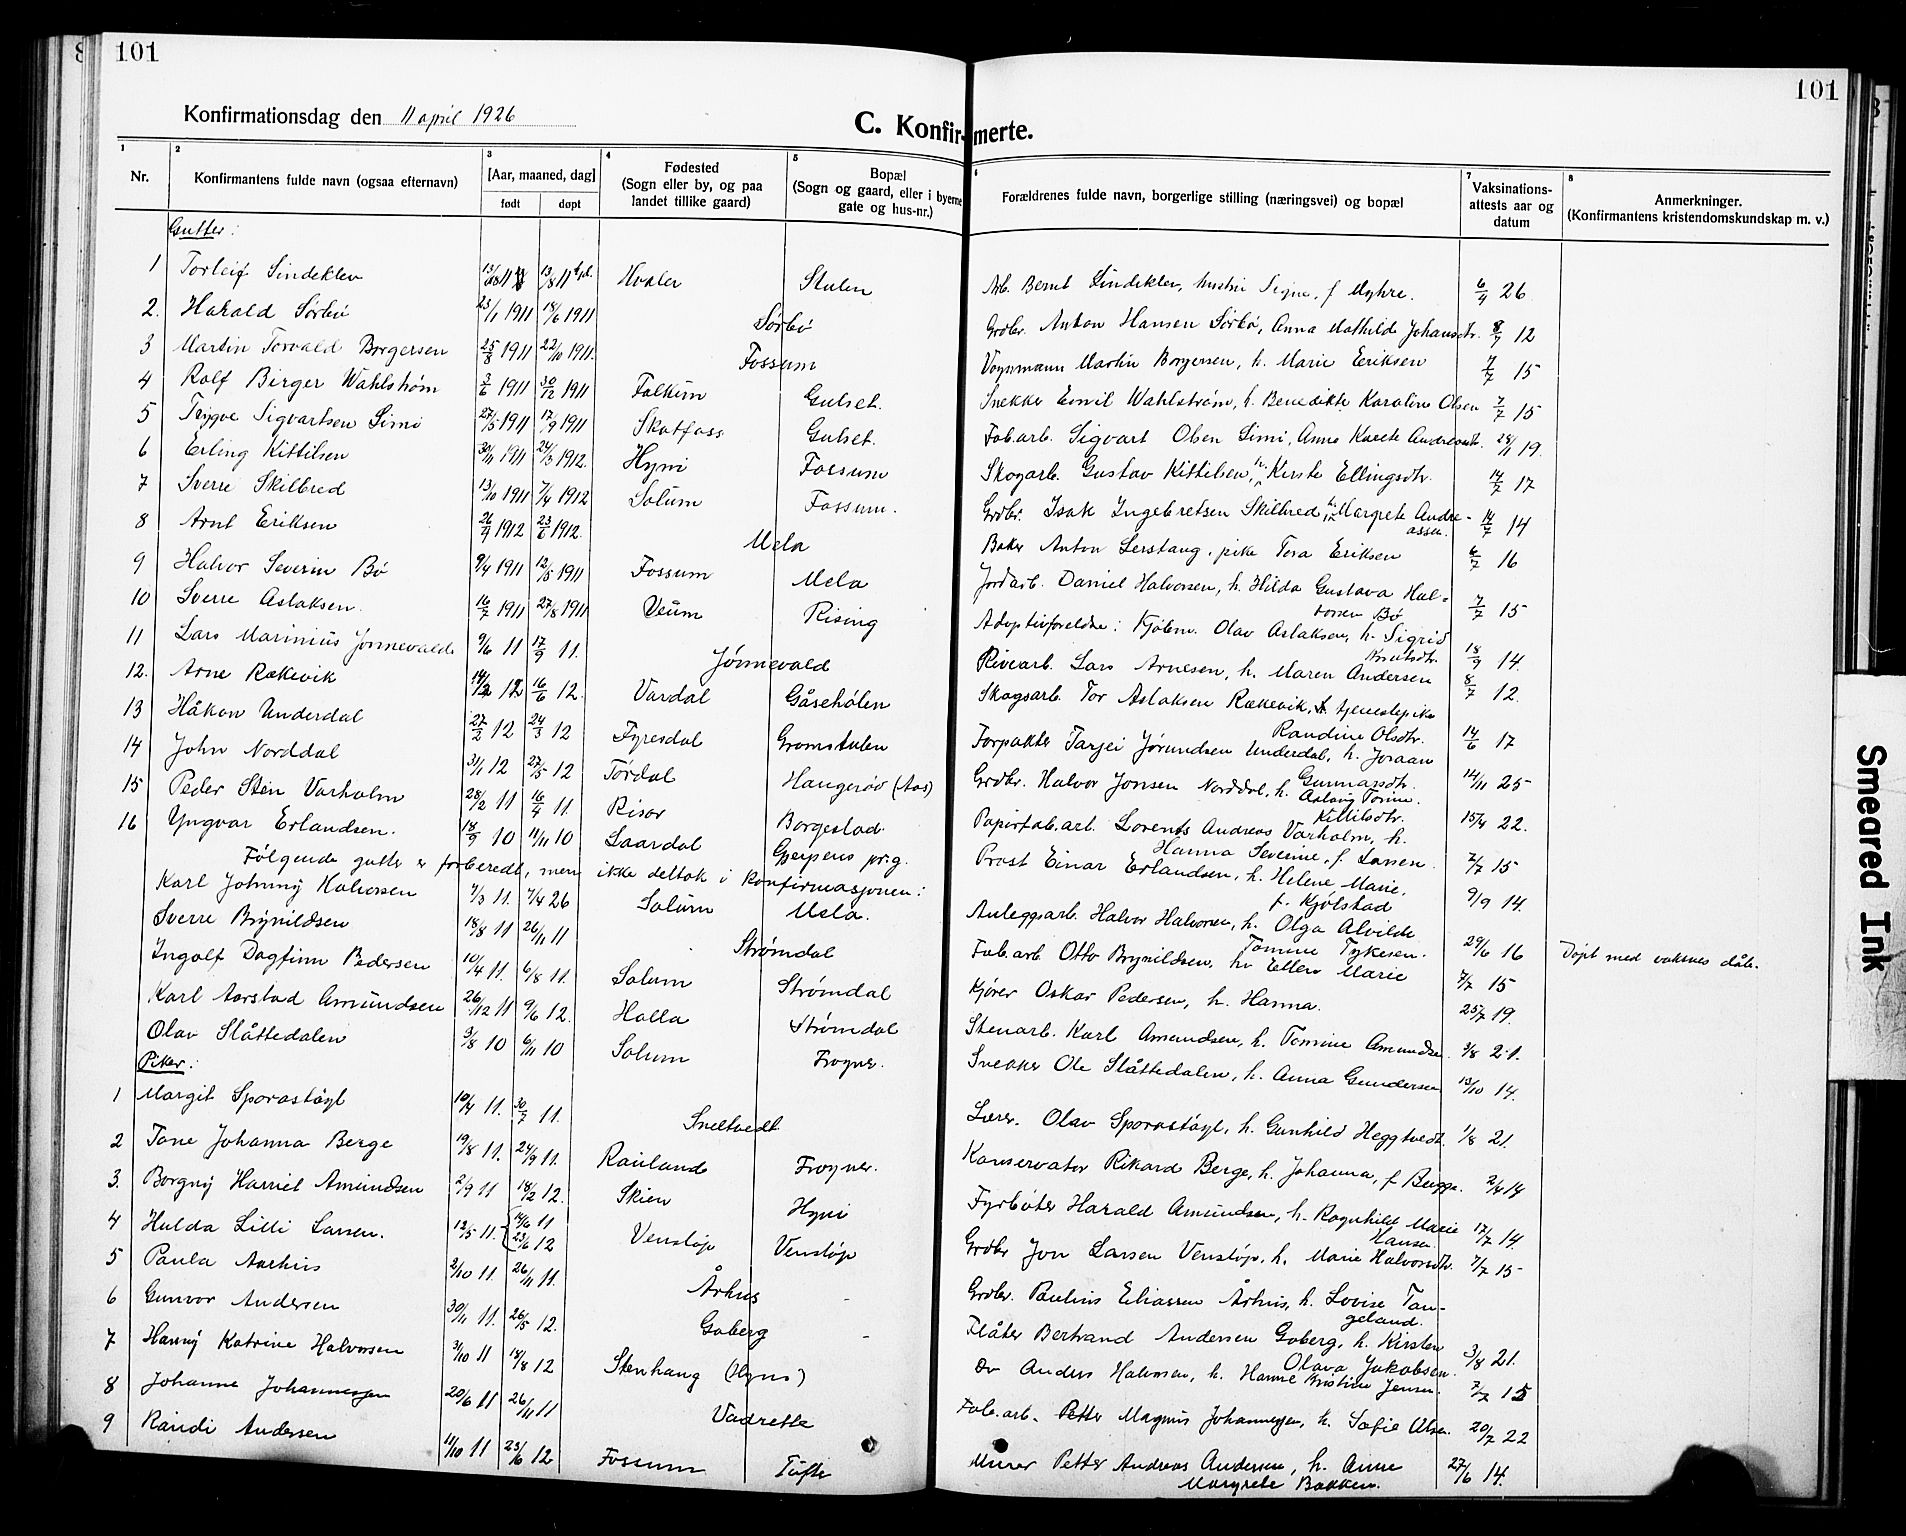 101
101
Konfirmationsdag den 11 april 1926
C. Konfirmerte.
1 Nr.
2 Konfirmantens fulde navn (ogsaa efternavn)
3 [Aar, maaned, dag] født døpt
4 Fødested (Sogn eller by, og paa landet tillike gaard)
5 Bopæl (Sogn og gaard, eller i byerne gate og hus-nr.)
6 Forældrenes fulde navn, borgerlige stilling (næringsvei) og bopæl
7 Vaksinations-attests aar og datum
8 Anmerkninger. (Konfirmantens kristendomskundskap m. v.)
Gutter:
1 Torleif Sindeklev 13/8 11 Hvaler Stulen Arb. Bernt Sindeklev, hustru Signe, f Myhre. 6/9 26
2. Harald Sørbø 23/1 1911 18/6 1911 Sørbø Grdbr. Anton Hansen Sørbø, Anna Mathilde Johansdtr. 8/7 12
3 Martin Torvald Borgersen 25/8 1911 22/10 1911. Fossum Vognmann Martin Borgersen, h. Marie Eriksen 7/7 15
4 Rolf Birger Wahlstrøm 3/6 1911 30/12 1911 Falkum Gulset. Snekker Emil Wahlstrøm, h. Benedikte Karoline Olsen 7/7 15
5 Trygve Sigvartsen Simi 27/5 1911 17/9 1911 Skotfoss Gulset. Fab.arb. Sigvart Olsen Simi, Anne Karete Andreasdt. 28/11 19.
6 Erling Kittilsen 30/11 1911 24/3 1912. Hyni Fossum Skogarb. Gustav Kittilsen, h. Kirste Ellingsdtr. 14/7 17
7 Sverre Skilbred 13/10 1911 7/4 1912 Solum Fossum. Grdbr. Isak Ingebretsen Skilbred, h. Margrete Andre-
assen. 14/7 14
8 Arnt Eriksen 26/9 1912 23/6 1912. Mela Baker Anton Lerstang, pike Tora Eriksen 6/7 16
9 Halvor Severin Bø 9/4 1911 12/5 1911 Fossum Mela Jordarb. Daniel Halvorsen, h. Hilda Gustava Hal-
vorsen Bø 7/7 15
10 Sverre Aslaksen. 16/7 1911 27/8 1911 Veum Rising Adoptivforeldre: Kjøbm. Olav Aslaksen, h. Sigrid
Knutsdtr. 18/9 14.
11 Lars Marinius Jønnevald 9/6 11 17/9 11. Jønnevald Rivearb. Lars Arnesen, h. Maren Andersen 8/7 12.
12. Arne Rækevik 12 16/6 12. Vardal Gåsehølen Skogsarb. Tor Aslaksen Rækevik, tjenestepike
Randine Olsdtr. 14/6 17
13 Håkon Underdal 27/2 12 24/3 12 Fyresdal Gromstulen Forpakter Tarjei Jørundsen Underdal, h. Joraan
Gunnarsdtr.
14 John Norddal 31/1 12 27/5 12 Tørdal Haugerød (Aas) Grdbr. Halvor Jonsen Norddal, h. Aslaug Tomine
Kittilsdtr. 14/11 25
15 Peder Sten Varholm 28/2 11 16/4 11. Risør Borgestad. Papirfab.arb. Lorents Andreas Varholm, h.
Hanna Severine, f Larsen. 15/4 22.
16 Yngvar Erlandsen. 18/9 10 11/11 10 Laardal Gjerpens prg. Prost Einar Erlandsen, h. Helene Marie,
f. Kjølstad 7/7 15
Følgende gutter er forberedt, men ikke deltok i konfirmasjonen:
Karl Johnny Halvorsen 7/3 11. 7/4 26 Solum Mela. Anleggsarb. Halvor Halvorsen, h. Olga Alvilde
Tomine Tykesen. 9/9 14. Døpt med voksnes dåb.
Sverre Brynildsen 18/8 11 26/11 11 Strømdal Fab.arb Otto Brynildsen, hu Ellen Marie 29/6 16
Ingolf Dagfinn Pedersen 10/4 11. 6/8 11. Solum Strømdal Kjører Oskar Pedersen, h. Hanna. 7/7 15
Karl Aarstad Amundsen 26/12 11 9/6 12. Holla Strømdal Stenarb. Karl Amundsen, h. Tomine Amundse. 25/7 19.
Olav Slåttedalen 3/8 10 6/11 10 Solum Frogner. Snekker Ole Slåttedalen, h. Anna Gundersen 3/8 21.
13/10 14.
Piker:
1 Margit Sporastøyl 10/4 11. 30/7 11. Sneltvedt Lærer. Olav Sporastøyl, h. Gunhild Heggtvedt. 1/8 21.
2 Tone Johanna Berge 19/8 11. 24/9 11. Rauland Frogner. Konservator Rikard Berge, h. Johanna, f Bugge. 2/4 14
3. Borgny Harriet Amundsen 2/9 11 18/2 12. Skien Hyni Fyrbøter Harald Amundsen, h. Ragnhild Marie
Hansen. 17/7 14.
4 Hulda Lilli Larsen. 12/5 11. 14/6 11 23/6 12 Venstøp Venstøp Grdbr Jon Larsen Venstøp, h. Marie Halvorsdtr. 7/7 15
5 Paula Aarhus 2/10 11. 26/11 11. Århus Grdbr. Paulius Eliassen Århus, h. Lovise Tan-
geland.
6 Gunvor Andersen 30/11 11. 26/5 12. Goberg Flåter Bertrand Andersen Goberg, h. Kirsten
Olava Jakobsen. 3/8 21.
7 Hanny Katrine Halvorsen 31/10 11 18/8 12 Stenhaug (Hyni) Anders Halvorsen, h. Hanne Kristine Jensen. 7/7 15
8 Johanne Johannessen 20/6 11 26/11 11 Vadrette Fab.arb. Petter Magnus Johannessen, h. Sofie Olsen. 20/7 22
9 Randi Andersen 11/10 11 23/6 12 Fossum Tufte Murer Petter Andreas Andersen, h. Anne
Margrete Bakken. 27/6 14.
Smeared Ink